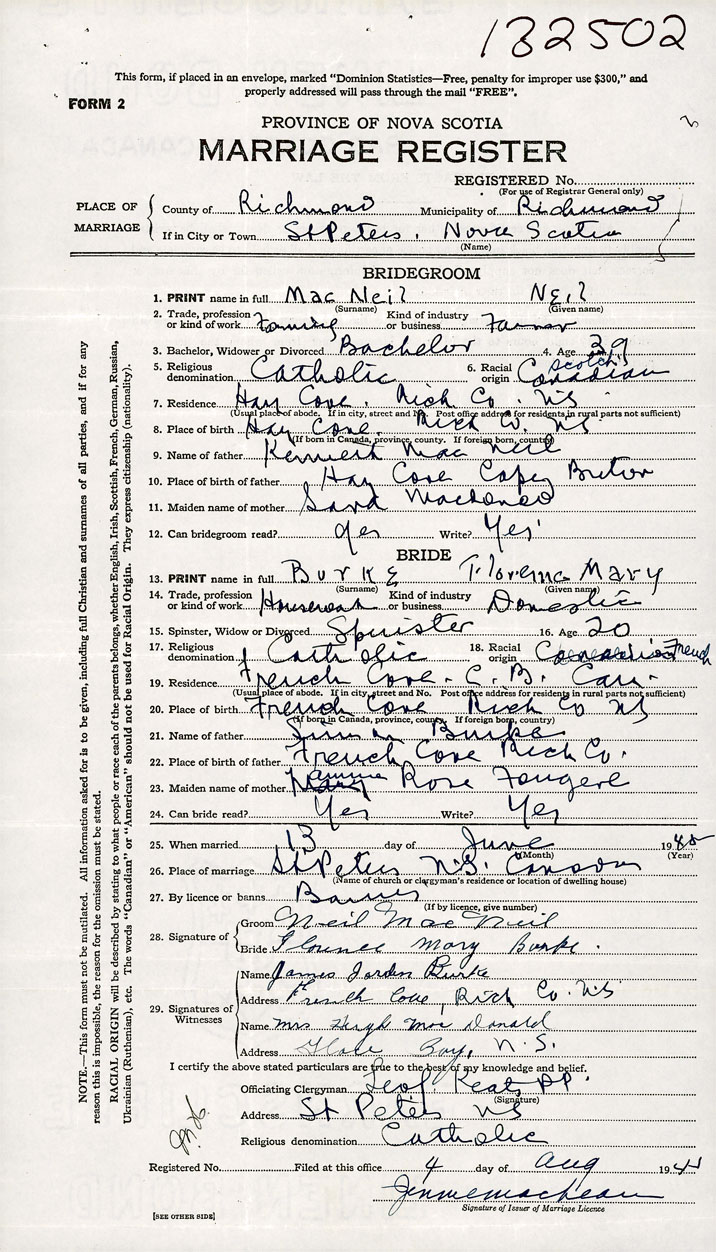 132502
This form, if placed in an envelope, marked "Dominion Statistics—Free, penalty for improper use $300," and
properly addressed will pass through the mail "FREE".
FORM 2
PROVINCE OF NOVA SCOTIA
MARRIAGE REGISTER
REGISTERED No.
(For use of Registrar General only)
PLACE OF MARRIAGE
County of Richmond Municipality of Richmond
If in City or Town St Peters, Nova Scotia
(Name)
BRIDEGROOM
1. PRINT name in full Mac Neil Neil
(Surname) (Given name)
2. Trade, profession or kind of work Farming Kind of industry or business Farmer
3. Bachelor, Widower or Divorced Bachelor 4. Age 39
5. Religious denomination Catholic 6. Racial origin Scotch Canadian
7. Residence Hay Cove. Rich Co. NS
(Usual place of abode. If in city, street and No. Post office address for residents in rural parts not sufficient)
8. Place of birth Hay Cove. Rich Co. NS
(If born in Canada, province, county. If foreign born, country)
9. Name of father Kenneth Mac Neil
10. Place of birth of father Hay Cove Cape Breton
11. Maiden name of mother Sara
12. Can bridegroom read? Yes Write? Yes
BRIDE
13. PRINT name in full Burke Florence Mary
(Surname) (Given name)
14. Trade, profession or kind of work Housework Kind of industry or business Domestic
15. Spinster, Widow or Divorced Spinster 16. Age 20
17. Religious denomination Catholic 18. Racial origin French
19. Residence French Cove. C. B. Can.
(Usual place of abode. If in city, street and No. Post office address for residents in rural parts not sufficient)
20. Place of birth French Cove Rich Co NS
(If born in Canada, province, county. If foreign born, country)
21. Name of father Burke
22. Place of birth of father French Cove Rich Co.
23. Maiden name of mother Rose Fougere
24. Can bride read? Yes Write? Yes
25. When married 13 day of June 1940
(Month) (Year)
26. Place of marriage St Peters N.S.
(Name of church or clergyman's residence or location of dwelling house)
27. By licence or banns Banns
(If by licence, give number)
28. Signature of
Groom Neil Mac Neil
Bride Florence Mary Burke.
29. Signatures of Witnesses
Name James Jorden Burke
Address French Cove, Rich Co. NS
Name Mrs Hugh Mac Donald
Address Glace Bay, N.S.
I certify the above stated particulars are true to the best of my knowledge and belief.
Officiating Clergyman P.P.
(Signature)
Address St Peters NS
Religious denomination Catholic
Registered No. Filed at this office 4 day of Aug 19
Signature of Issuer of Marriage Licence
[SEE OTHER SIDE]
NOTE.—This form must not be mutilated. All information asked for is to be given, including full Christian and surnames of all parties, and if for any
reason this is impossible, the reason for the omission must be stated.
RACIAL ORIGIN will be described by stating to what people or race each of the parents belongs, whether English, Irish, Scottish, French, German, Russian,
Ukrainian (Ruthenian), etc. The words "Canadian" or "American" should not be used for Racial Origin. They express citizenship (nationality).